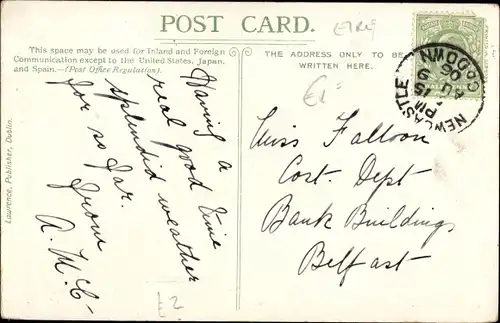 POST CARD.
EIRE
This space may be used for Inland and Foreign
Communication except to the United States, Japan,
and Spain.—(Post Office Regulation).
THE ADDRESS ONLY TO BE
WRITTEN HERE.
NEWCASTLE CO. DOWN
PM
AU 9
06
Having a
real good time
splendid weather
for so far.
from
A. McC-
Miss Falloon
Cost. Dept
Bank Buildings
Belfast
Lawrence, Publisher, Dublin.
£2